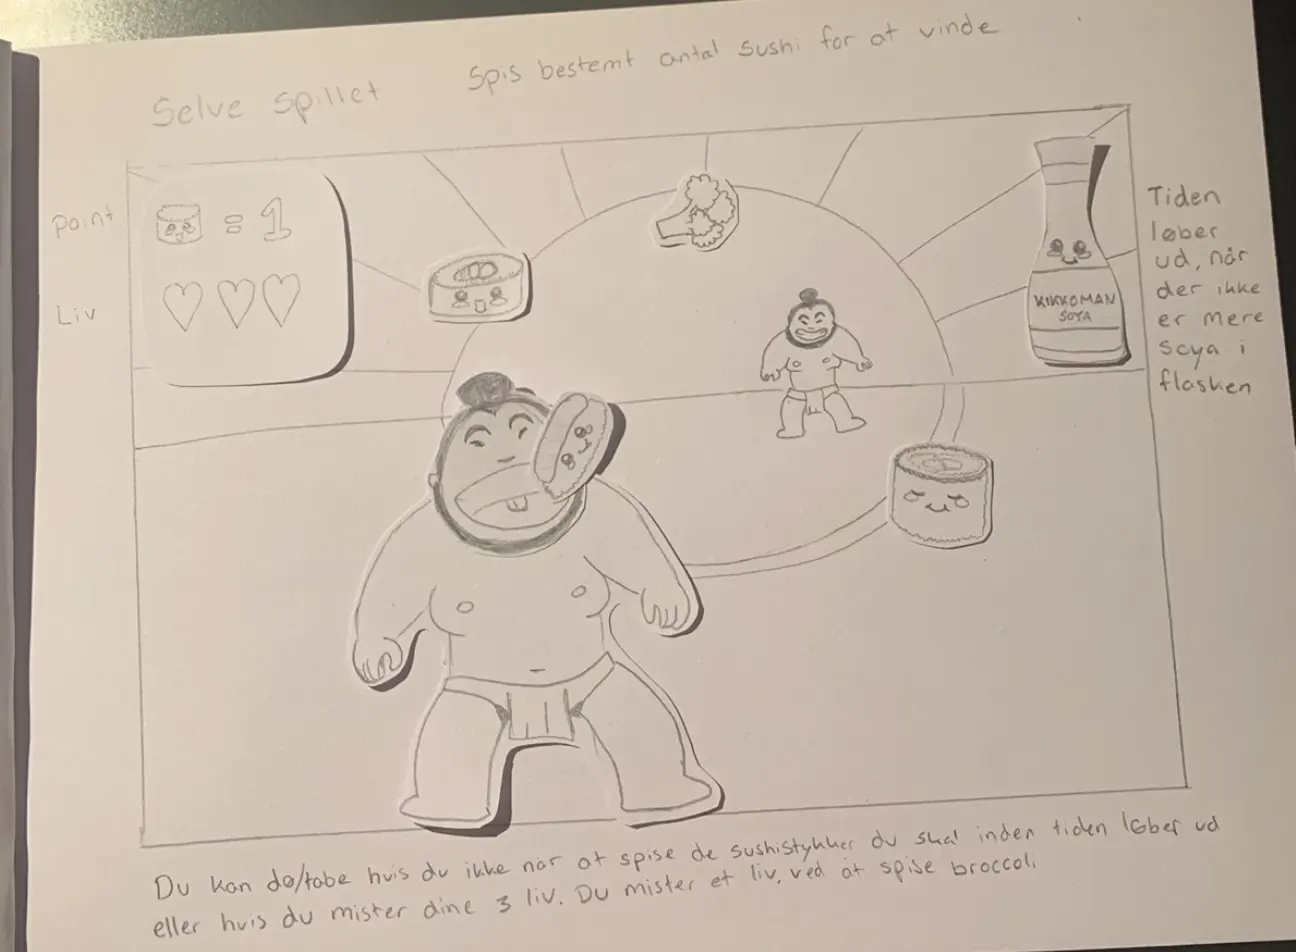 Selve spillet
Spis bestemt antal sushi for at vinde
Point
= 1
Liv
KIKKOMAN
SOYA
Tiden
løber
ud, når
der ikke
er mere
Soya i
flasken
Du kan dø/tabe hvis du ikke når at spise de sushistykker du skal inden tiden løber ud
eller hvis du mister dine 3 liv. Du mister et liv, ved at spise broccoli